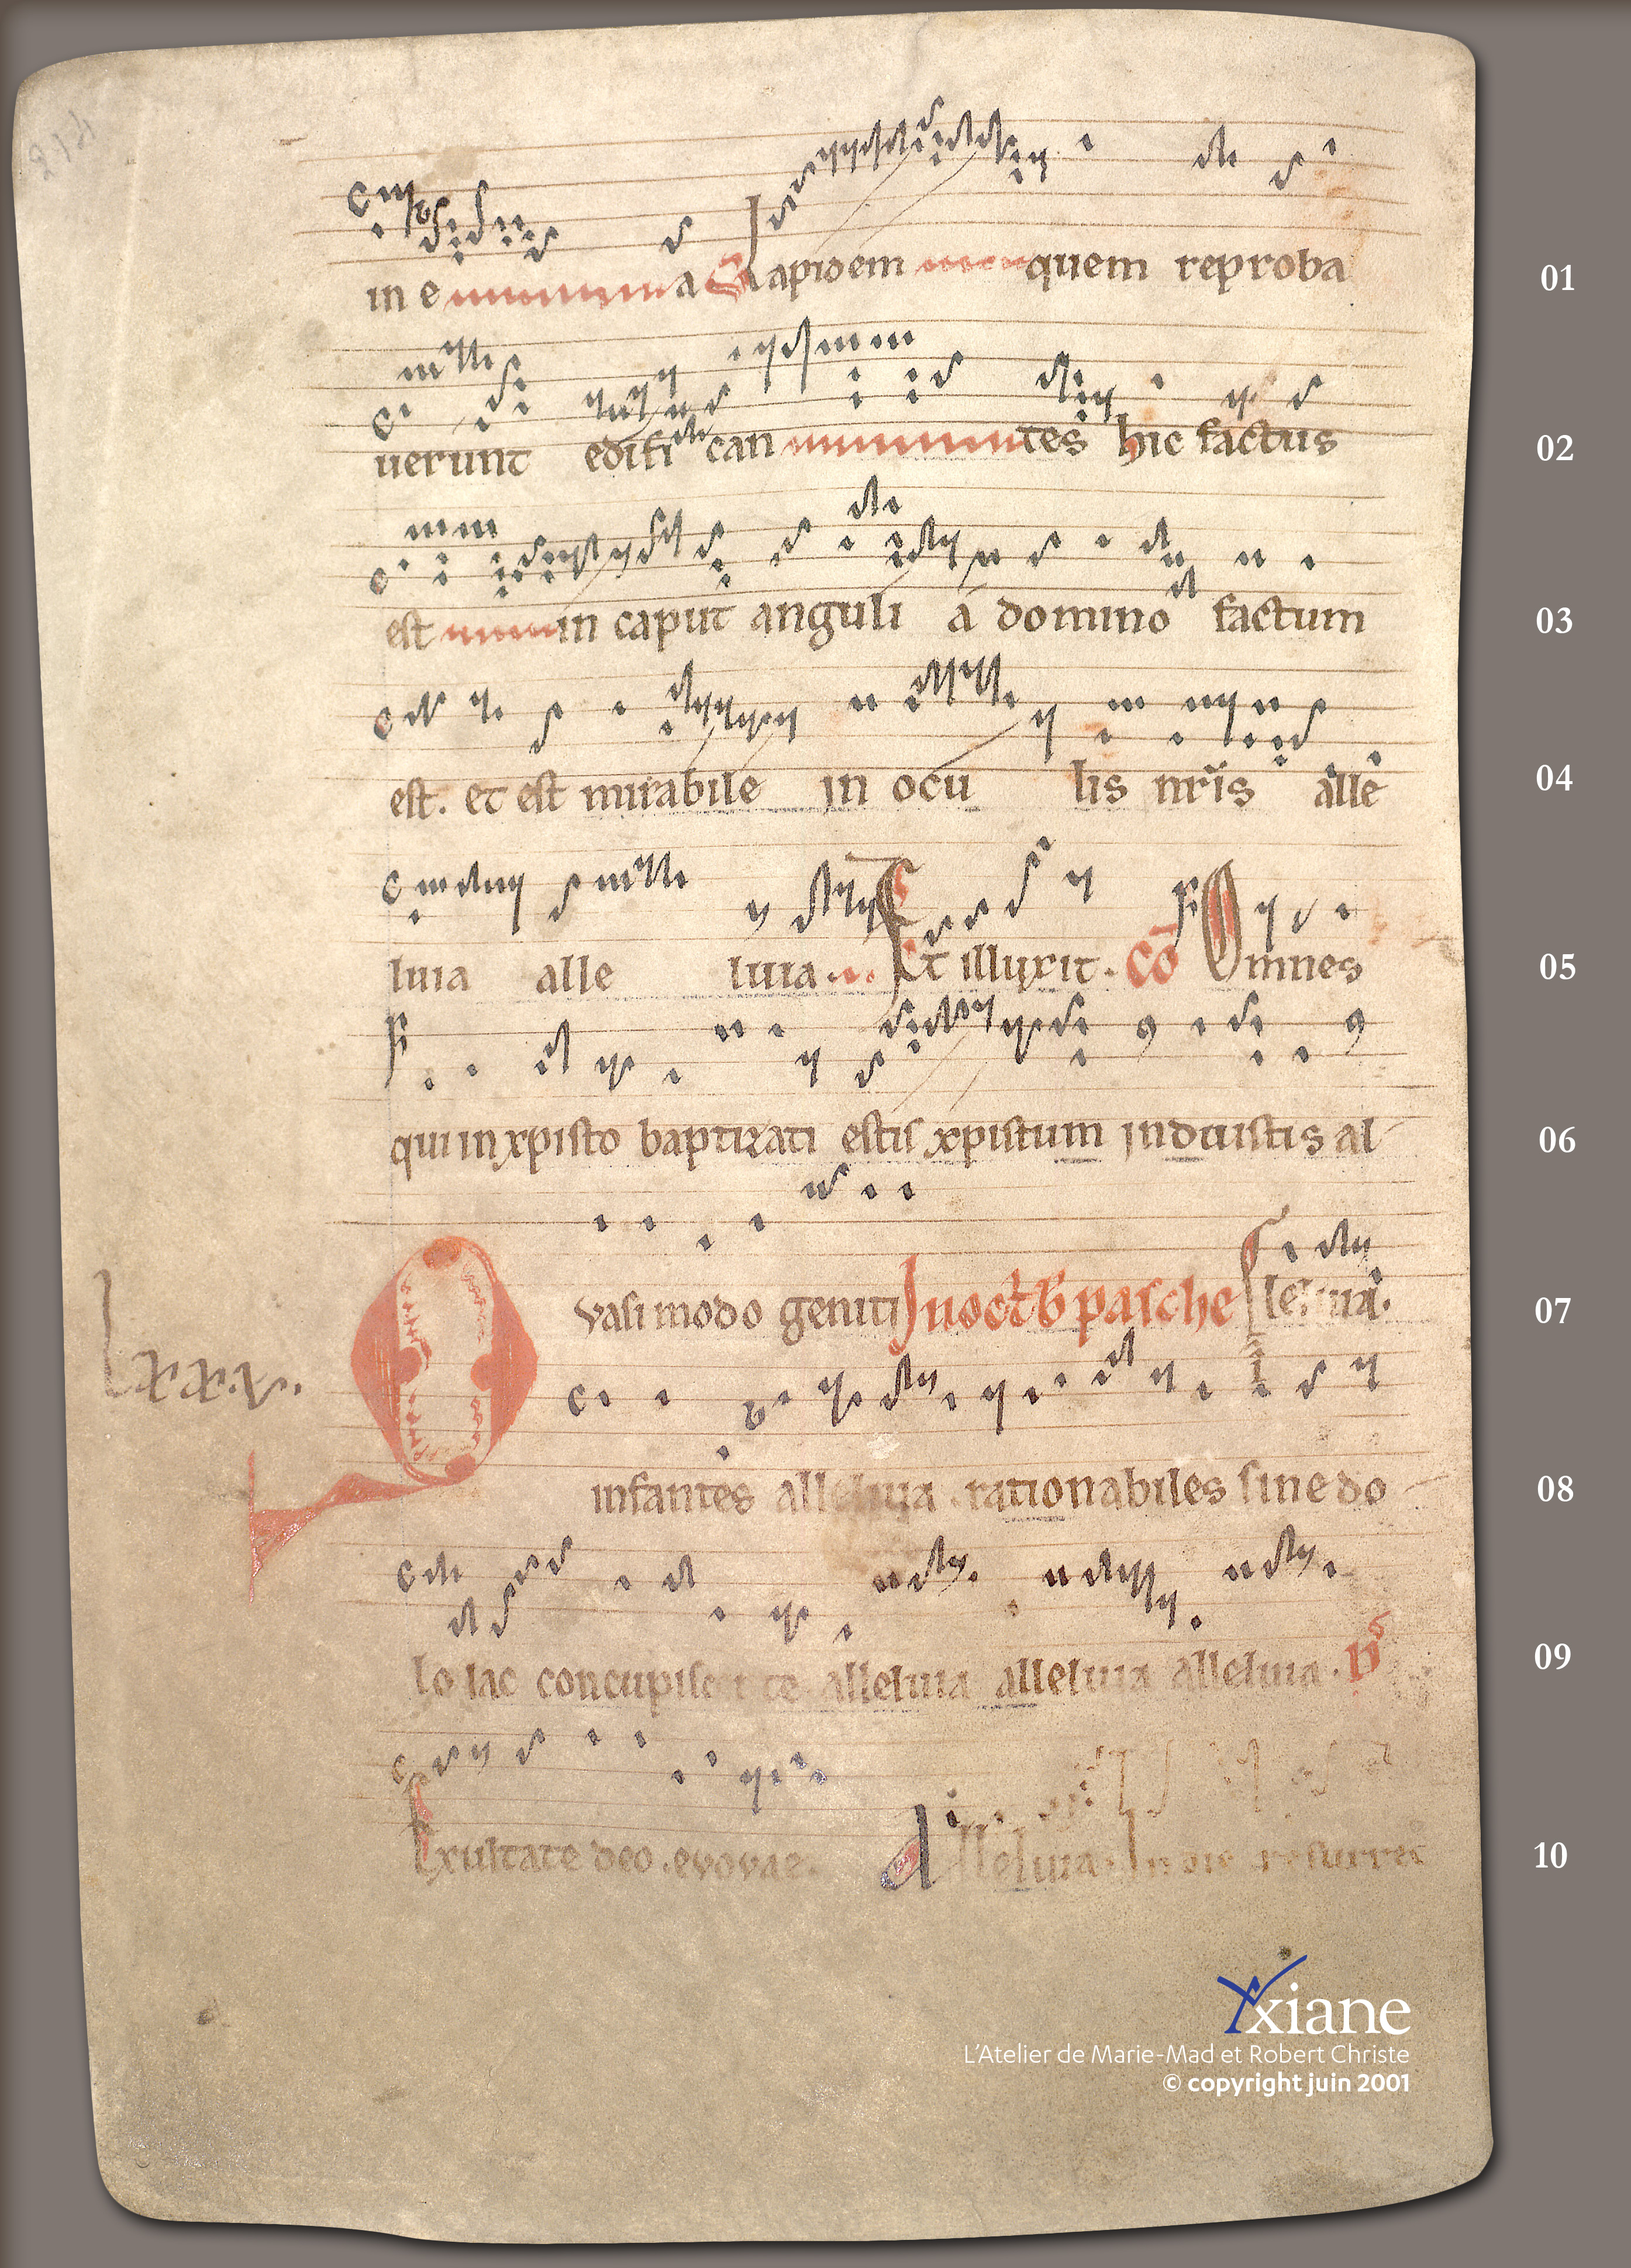 in e a Lapidem quem reproba 01
uerunt edifi can tes hic factus 02
est in caput anguli á domino factum 03
est. et est mirabile in ocu lis nr̄is alle 04
luia alle luia. Et illuxit. Cō Omnes 05
qui in xpisto baptizati estis xpistum induistis al 06
lxxx.v. Qvasi modo geniti In oct̄b pasche leluia. 07
infantes alleluia. rationabiles sine do 08
lo lac concupiscite alleluia alleluia alleluia. ps 09
Exultate deo. evovae. Alleluia. In die resurrec 10
Axiane
L'Atelier de Marie-Mad et Robert Christe
© copyright juin 2001